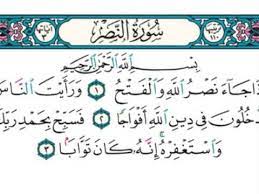 سُورَةُ النَّصْرِ
بِسْمِ اللَّهِ الرَّحْمَٰنِ الرَّحِيمِ
ذَا جَاءَ نَصْرُ اللَّهِ وَالْفَتْحُ ١ وَرَأَيْتَ النَّاسَ
دْخُلُونَ فِي دِينِ اللَّهِ أَفْوَاجًا ٢ فَسَبِّحْ بِحَمْدِ رَبِّكَ
وَاسْتَغْفِرْهُ إِنَّهُ كَانَ تَوَّابًا ٣